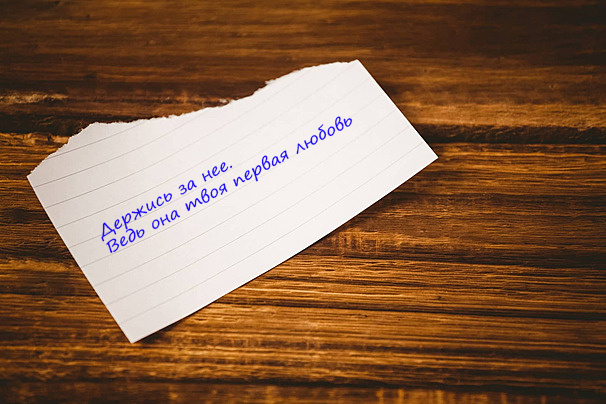 Держись за нее.
Ведь она твоя первая любовь